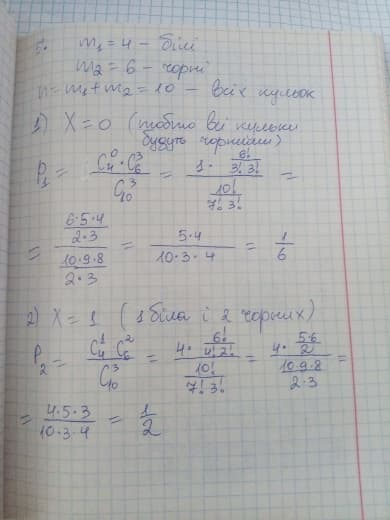 5. m₁ = 4 – білі
m₂ = 6 – чорні
n = m₁ + m₂ = 10 – всіх кульок
1) X = 0 (тобто всі кульки
будуть чорними)
P₁ = (C₄⁰ · C₆³) / C₁₀³ = (1 · 6!/(3! 3!)) / (10!/(7! 3!)) =
= ((6·5·4)/(2·3)) / ((10·9·8)/(2·3)) = (5·4)/(10·3·4) = 1/6
2) X = 1 (1 біла і 2 чорних)
P₂ = (C₄¹ C₆²) / C₁₀³ = (4 · 6!/(4! 2!)) / (10!/(7! 3!)) = (4 · (5·6)/2) / ((10·9·8)/(2·3)) =
= (4·5·3)/(10·3·4) = 1/2